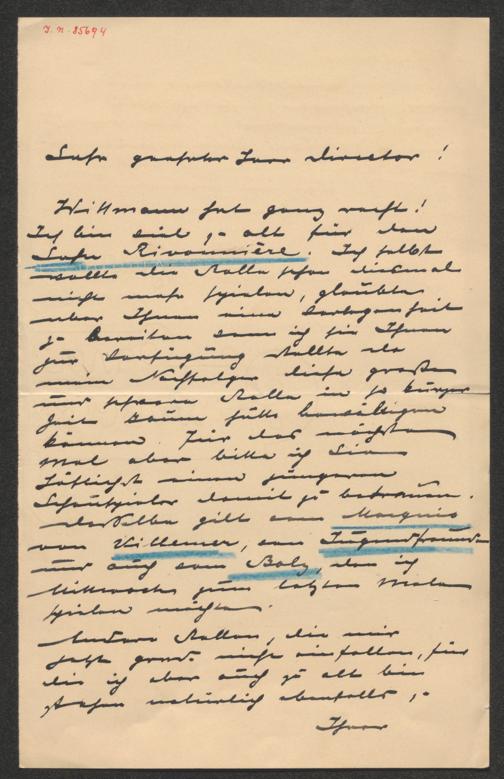 J. N. 85694
Sehr geehrter Herr Director!
Wittmann hat ganz recht!
Ich bin viel zu alt für den
Sohn Rivonnière. Ich selbst
wollte die Rolle schon diesmal
nicht mehr spielen, glaubte
aber Ihnen eine Verlegenheit
zu bereiten wenn ich sie Ihnen
zur Verfügung stellte da
mein Nachfolger diese große
und schwere Rolle in so kurzer
Zeit kaum hätte bewältigen
können. Für das nächste
Mal aber bitte ich Sie
höflichst einen jüngeren
Schauspieler damit zu betrauen.
Dasselbe gilt vom Marquis
von Villemer, vom Jugendfreund
und auch vom Bolz, den ich
Mittwoch zum letzten Male
spielen möchte.
Andere Rollen, die mir
jetzt grad nicht einfallen, für
die ich aber auch zu alt bin
stehen natürlich ebenfalls zu
Ihrer